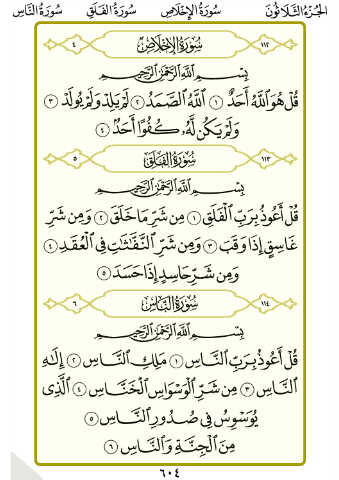 الجُزءُ الثَّلَاثُونَ سُورَةُ الإِخْلَاصِ سُورَةُ الفَلَقِ سُورَةُ النَّاسِ
١١٢ سُورَةُ الإِخْلَاصِ ٤
بِسْمِ ٱللَّهِ ٱلرَّحْمَٰنِ ٱلرَّحِيمِ
قُلْ هُوَ ٱللَّهُ أَحَدٌ ١ ٱللَّهُ ٱلصَّمَدُ ٢ لَمْ يَلِدْ وَلَمْ يُولَدْ ٣
وَلَمْ يَكُن لَّهُۥ كُفُوًا أَحَدٌۢ ٤
١١٣ سُورَةُ الفَلَقِ ٥
بِسْمِ ٱللَّهِ ٱلرَّحْمَٰنِ ٱلرَّحِيمِ
قُلْ أَعُوذُ بِرَبِّ ٱلْفَلَقِ ١ مِن شَرِّ مَا خَلَقَ ٢ وَمِن شَرِّ
غَاسِقٍ إِذَا وَقَبَ ٣ وَمِن شَرِّ ٱلنَّفَّٰثَٰتِ فِى ٱلْعُقَدِ ٤
وَمِن شَرِّ حَاسِدٍ إِذَا حَسَدَ ٥
١١٤ سُورَةُ النَّاسِ ٦
بِسْمِ ٱللَّهِ ٱلرَّحْمَٰنِ ٱلرَّحِيمِ
قُلْ أَعُوذُ بِرَبِّ ٱلنَّاسِ ١ مَلِكِ ٱلنَّاسِ ٢ إِلَٰهِ
ٱلنَّاسِ ٣ مِن شَرِّ ٱلْوَسْوَاسِ ٱلْخَنَّاسِ ٤ ٱلَّذِى
يُوَسْوِسُ فِى صُدُورِ ٱلنَّاسِ ٥
مِنَ ٱلْجِنَّةِ وَٱلنَّاسِ ٦
٦٠٤